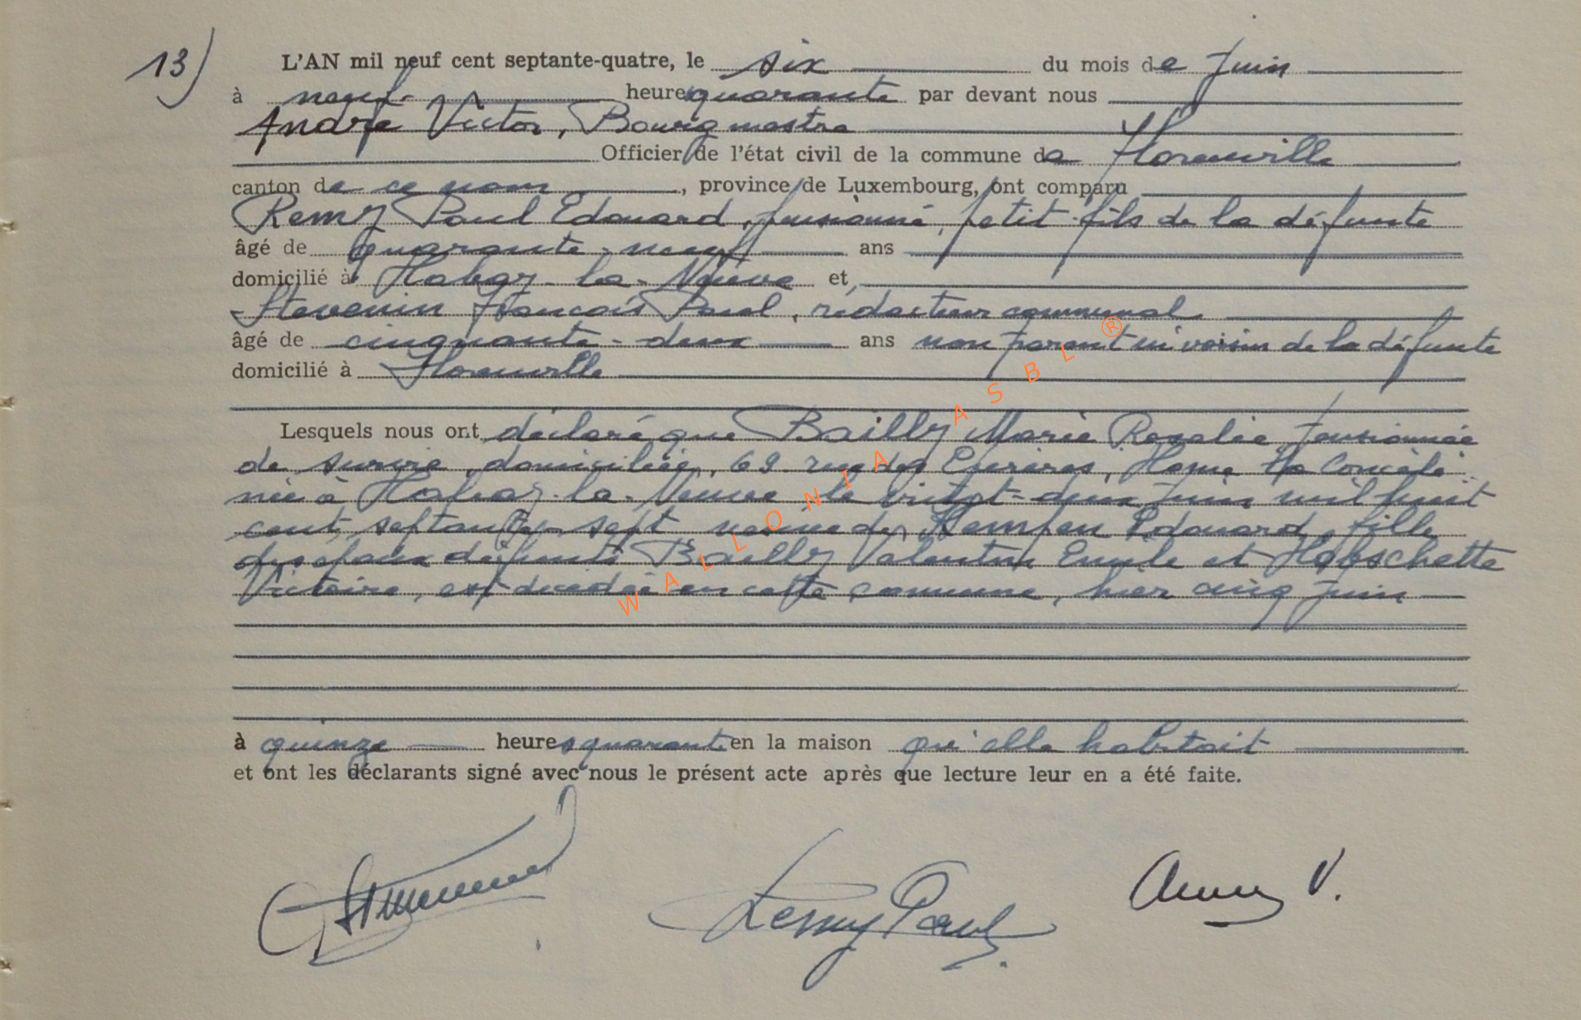 13) L'AN mil neuf cent septante-quatre, le six du mois de Juin
à neuf heures quarante par devant nous
André Victor, Bourgmestre
Officier de l'état civil de la commune de Florenville
canton de ce nom, province de Luxembourg, ont comparu
Remy Paul Edouard, pensionné, petit-fils de la défunte
âgé de quarante-neuf ans
domicilié à Habay-la-Neuve et
Stevenin François Paul, rédacteur communal
âgé de cinquante-deux ans non parent ni voisin de la défunte
domicilié à Florenville
Lesquels nous ont déclaré que Bailly Marie Rosalie, pensionnée
de survie, domiciliée, 69 rue des Home La
née à Habay-la-Neuve le vingt-deux juin mil huit
cent septante-sept veuve de Edouard, fille
des époux défunts Bailly Valentin Emile et Habschette
Victoire, est décédée en cette commune, hier cinq juin
à quinze heures quarante en la maison qu'elle habitait
et ont les déclarants signé avec nous le présent acte après que lecture leur en a été faite.
Remy Paul
WALLONIA ASBL ®